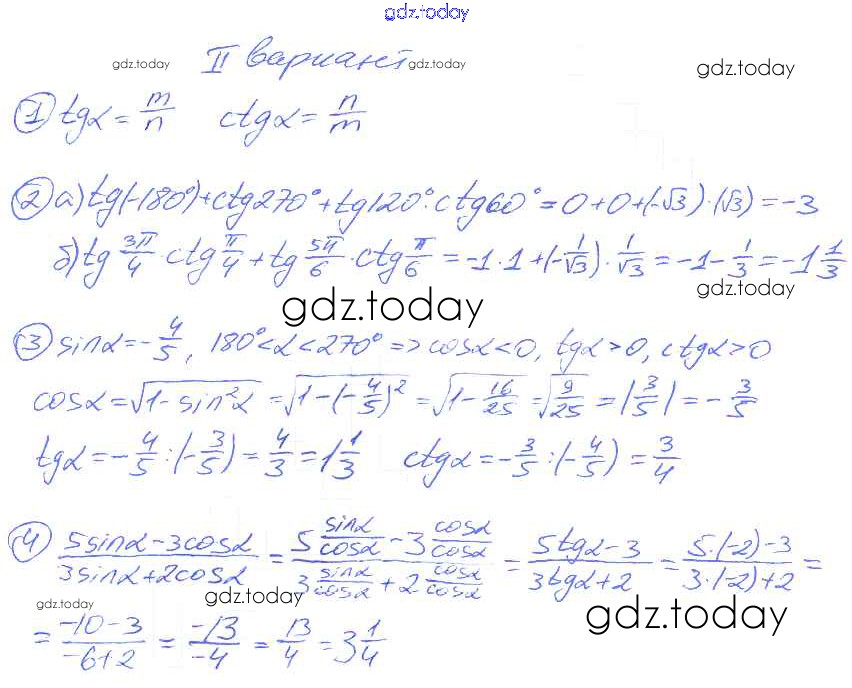 gdz.today
gdz.today II вариант gdz.today gdz.today
① tgα = m/n ctgα = n/m
② а) tg(-180°)+ctg270°+tg120°·ctg60° = 0+0+(-√3)·(√3) = -3
б) tg 3π/4 · ctg π/4 + tg 5π/6 · ctg π/6 = -1·1+(-1/√3)·1/√3 = -1-1/3 = -1 1/3
gdz.today
gdz.today
③ sinα = -4/5, 180°<α<270° => cosα<0, tgα>0, ctgα>0
cosα = √(1-sin²α) = √(1-(-4/5)²) = √(1-16/25) = √(9/25) = |3/5| = -3/5
tgα = -4/5:(-3/5) = 4/3 = 1 1/3 ctgα = -3/5:(-4/5) = 3/4
④ (5sinα-3cosα)/(3sinα+2cosα) = (5 sinα/cosα - 3 cosα/cosα)/(3 sinα/cosα + 2 cosα/cosα) = (5tgα-3)/(3tgα+2) = (5·(-2)-3)/(3·(-2)+2) =
gdz.today gdz.today gdz.today
= (-10-3)/(-6+2) = -13/-4 = 13/4 = 3 1/4